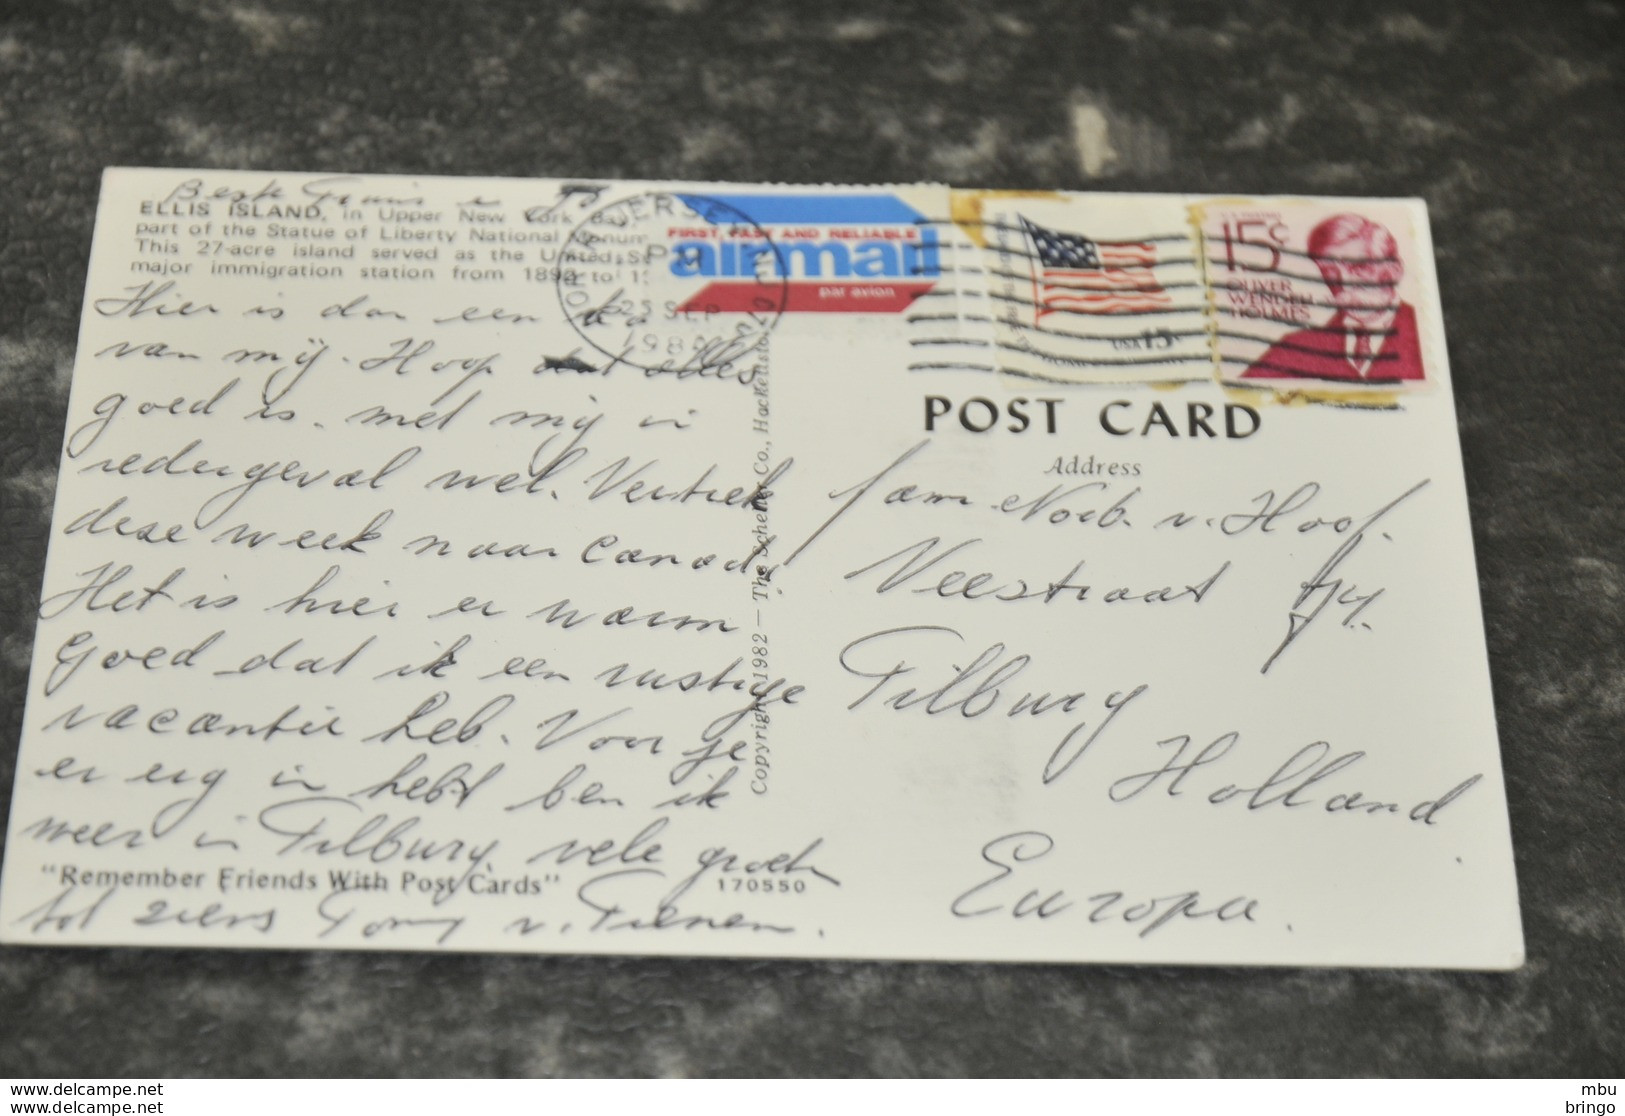 Beste
ELLIS ISLAND, in Upper New York Bay
part of the Statue of Liberty National Monum
This 27-acre island served as the United St
major immigration station from 1892 to 1
Hier is dan een
van mij. Hoop alles
goed is. met mij in
iedergeval wel. Vertrek
deze week naar Canada.
Het is hier er warm
Goed dat ik een rustige
vacantie heb. Voor je
er erg in hebt ben ik
weer in Tilburg. vele groeten
"Remember Friends With Post Cards"
170550
tot ziens Tony v. Tienen.
Copyright 1982 — The Scheller Co., Hackensack, NJ 07601
JERSEY
PM
23 SEP
198
FIRST, FAST AND RELIABLE
airmail
par avion
USA 15c
15c
OLIVER
WENDELL
HOLMES
POST CARD
Address
fam. Norb. v. Hoof.
Veestraat
Tilburg
Holland
Europa.
www.delcampe.net
www.delcampe.net
mbu
bringo